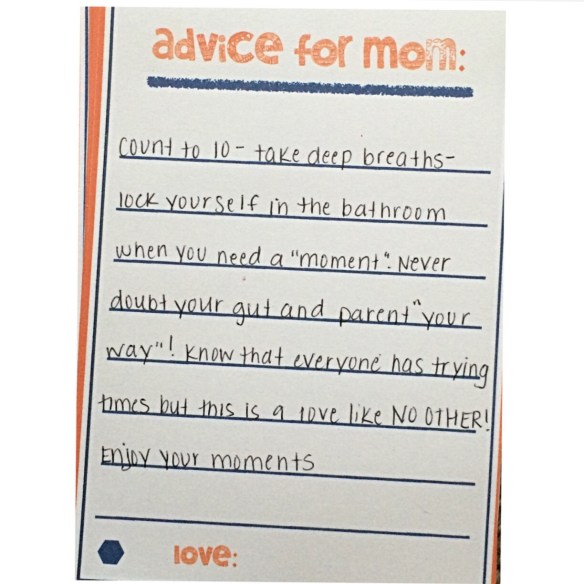 advice for mom:
count to 10 - take deep breaths -
lock yourself in the bathroom
when you need a "moment". Never
doubt your gut and parent "your
way"! Know that everyone has trying
times but this is a love like NO OTHER!
Enjoy your moments
love: